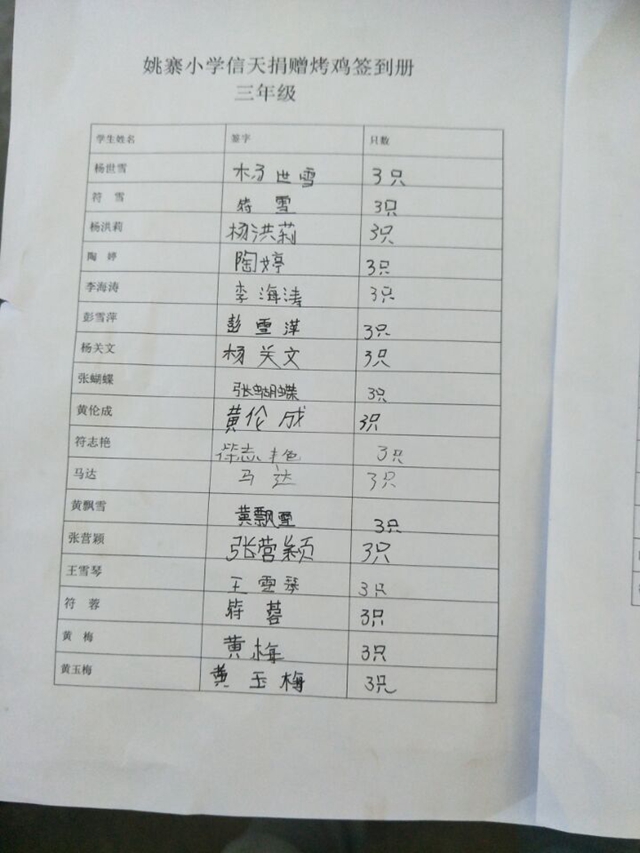 姚寨小学信天捐赠烤鸡签到册
三年级
学生姓名 签字 只数
杨世雪 杨世雪 3只
符 雪 符 雪 3只
杨洪莉 杨洪莉 3只
陶 婷 陶婷 3只
李海涛 李海涛 3只
彭雪萍 彭雪萍 3只
杨关文 杨关文 3只
张蝴蝶 张蝴蝶 3只
黄伦成 黄伦成 3只
符志艳 符志艳 3只
马达 马达 3只
黄飘雪 黄飘雪 3只
张营颖 张营颖 3只
王雪琴 王雪琴 3只
符 蓉 符蓉 3只
黄 梅 黄梅 3只
黄玉梅 黄玉梅 3只